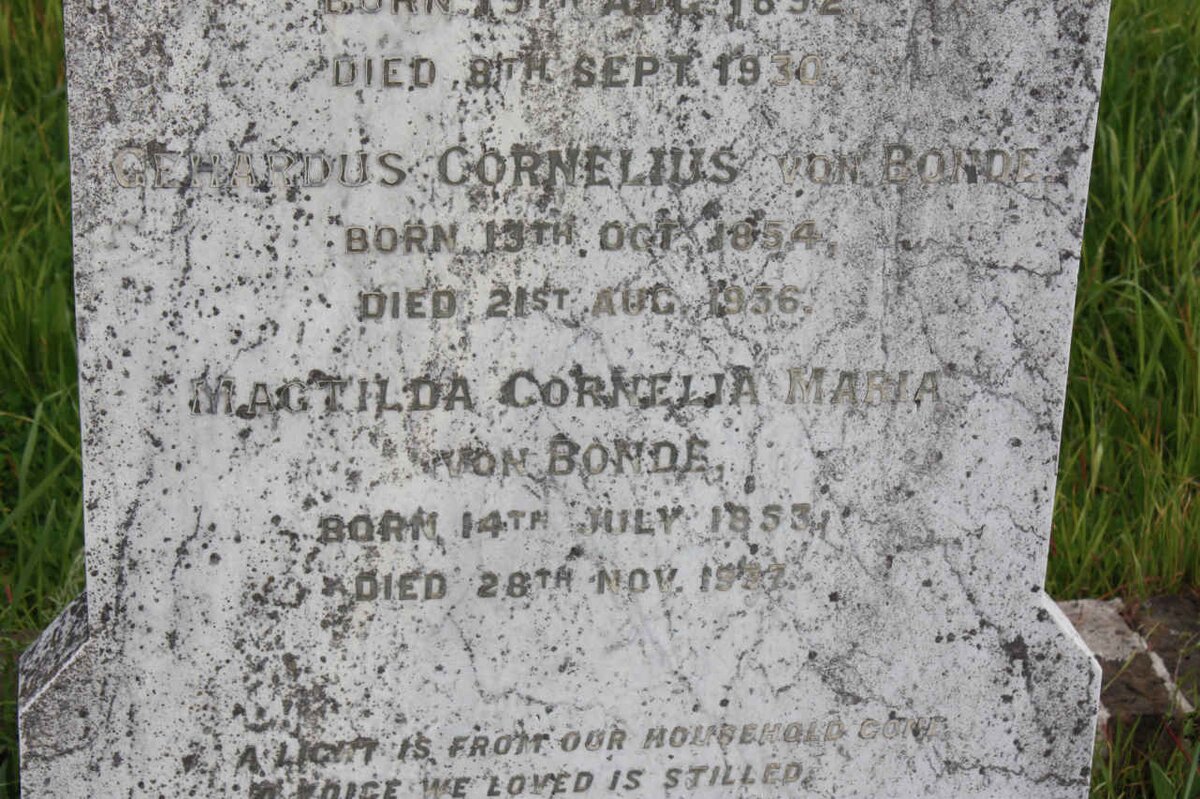 BORN 19TH AUG. 1892,
DIED 8TH SEPT. 1930.
GEHARDUS CORNELIUS VON BONDE,
BORN 13TH OCT. 1854,
DIED 21ST AUG. 1936.
MAGTILDA CORNELIA MARIA
VON BONDE,
BORN 14TH JULY 1853,
DIED 28TH NOV. 1937.
A LIGHT IS FROM OUR HOUSEHOLD GONE
A VOICE WE LOVED IS STILLED,